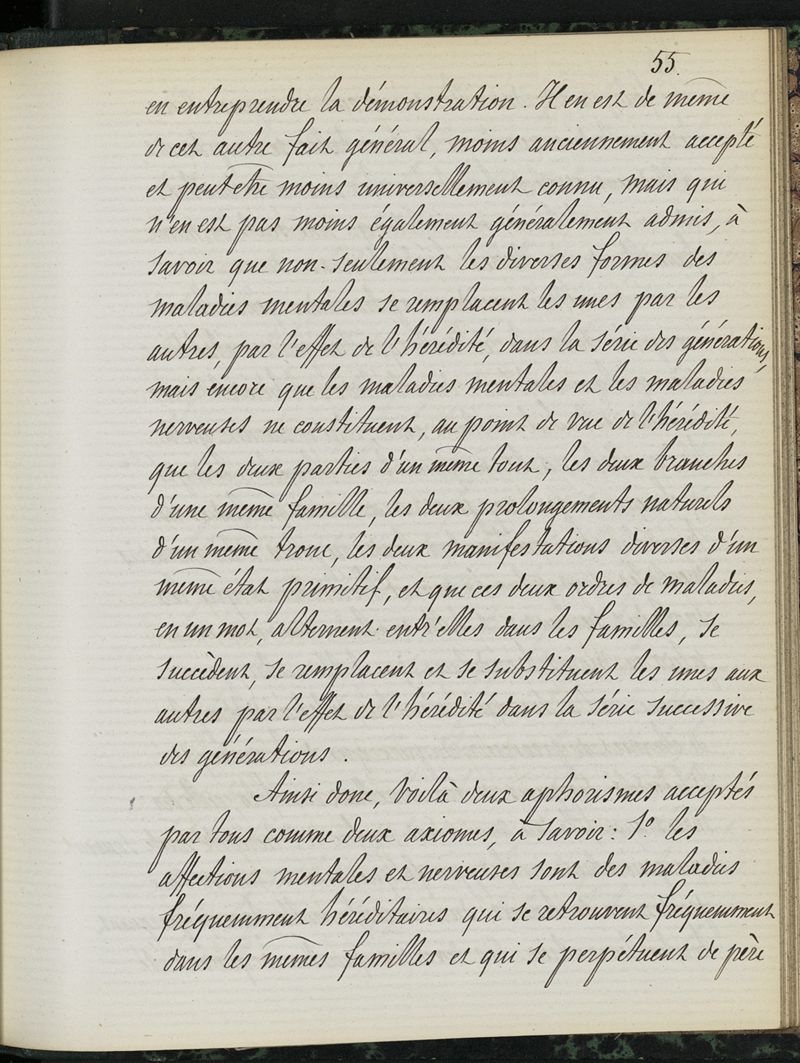 55.
en entreprendre la démonstration. Il en est de même
de cet autre fait général, moins anciennement accepté
et peut être moins universellement connu, mais qui
n'en est pas moins également généralement admis, à
savoir que non-seulement les diverses formes des
maladies mentales se remplacent les unes par les
autres, par l'effet de l'hérédité, dans la série des générations,
mais encore que les maladies mentales et les maladies
nerveuses ne constituent, au point de vue de l'hérédité,
que les deux parties d'un même tout, les deux branches
d'une même famille, les deux prolongements naturels
d'un même tronc, les deux manifestations diverses d'un
même état primitif, et que ces deux ordres de maladies,
en un mot, alternent entr'elles dans les familles, se
succèdent, se remplacent et se substituent les unes aux
autres par l'effet de l'hérédité dans la série successive
des générations.
Ainsi donc, voilà deux aphorismes acceptés
par tous comme deux axiomes, à savoir: 1º. les
affections mentales et nerveuses sont des maladies
fréquemment héréditaires qui se retrouvent fréquemment
dans les mêmes familles et qui se perpétuent de père